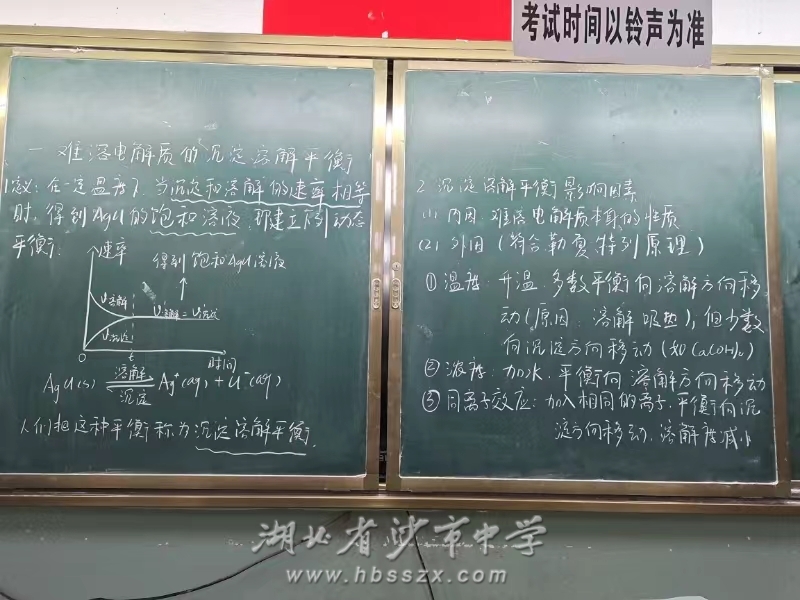 考试时间以铃声为准
一 难溶电解质的沉淀溶解平衡
1定义: 在一定温度下, 当沉淀和溶解的速率相等
时, 得到AgCl的饱和溶液, 即建立下列动态
平衡:
速率
得到饱和AgCl溶液
V溶解
V溶解 = V沉淀
V沉淀
0
t
时间
AgCl(s) 溶解 沉淀 Ag⁺(aq) + Cl⁻(aq)
人们把这种平衡称为沉淀溶解平衡.
2. 沉淀溶解平衡影响因素
(1) 内因: 难溶电解质本身的性质
(2) 外因 (符合勒夏特列原理)
① 温度: 升温, 多数平衡向溶解方向移
动(原因: 溶解吸热), 但少数
向沉淀方向移动 (如Ca(OH)₂)
② 浓度: 加水, 平衡向溶解方向移动
③ 同离子效应: 加入相同的离子, 平衡向沉
淀方向移动, 溶解度减小
湖北省沙市中学
www.hbsszx.com